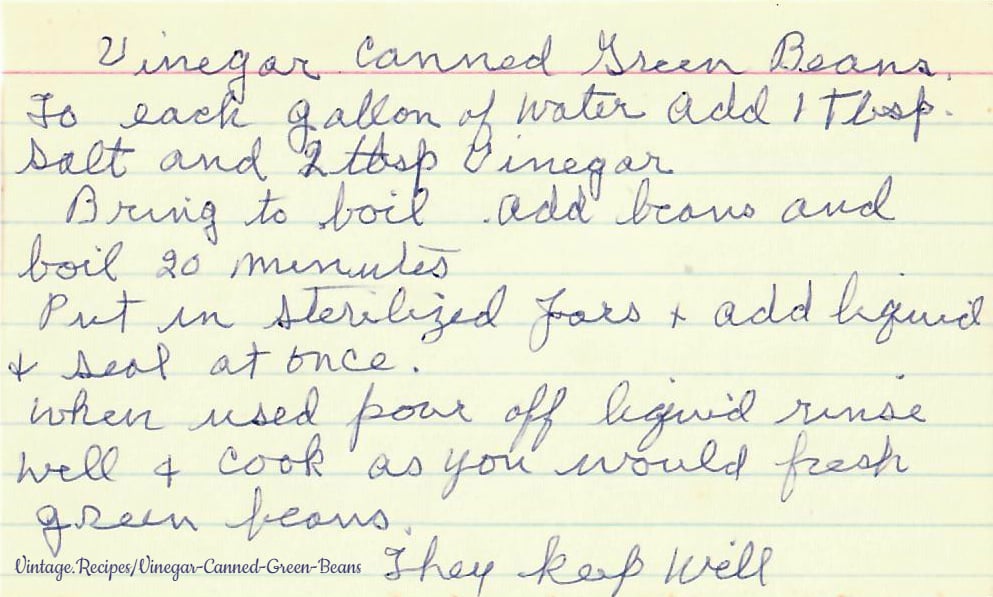 Vinegar Canned Green Beans.
To each gallon of water add 1 Tbsp.
Salt and 2 tbsp Vinegar
Bring to boil. add beans and
boil 20 minutes
Put in sterilized Jars + add liquid
& seal at once.
when used pour off liquid rinse
well & cook as you would fresh
green beans.
They keep well
Vintage.Recipes/Vinegar-Canned-Green-Beans